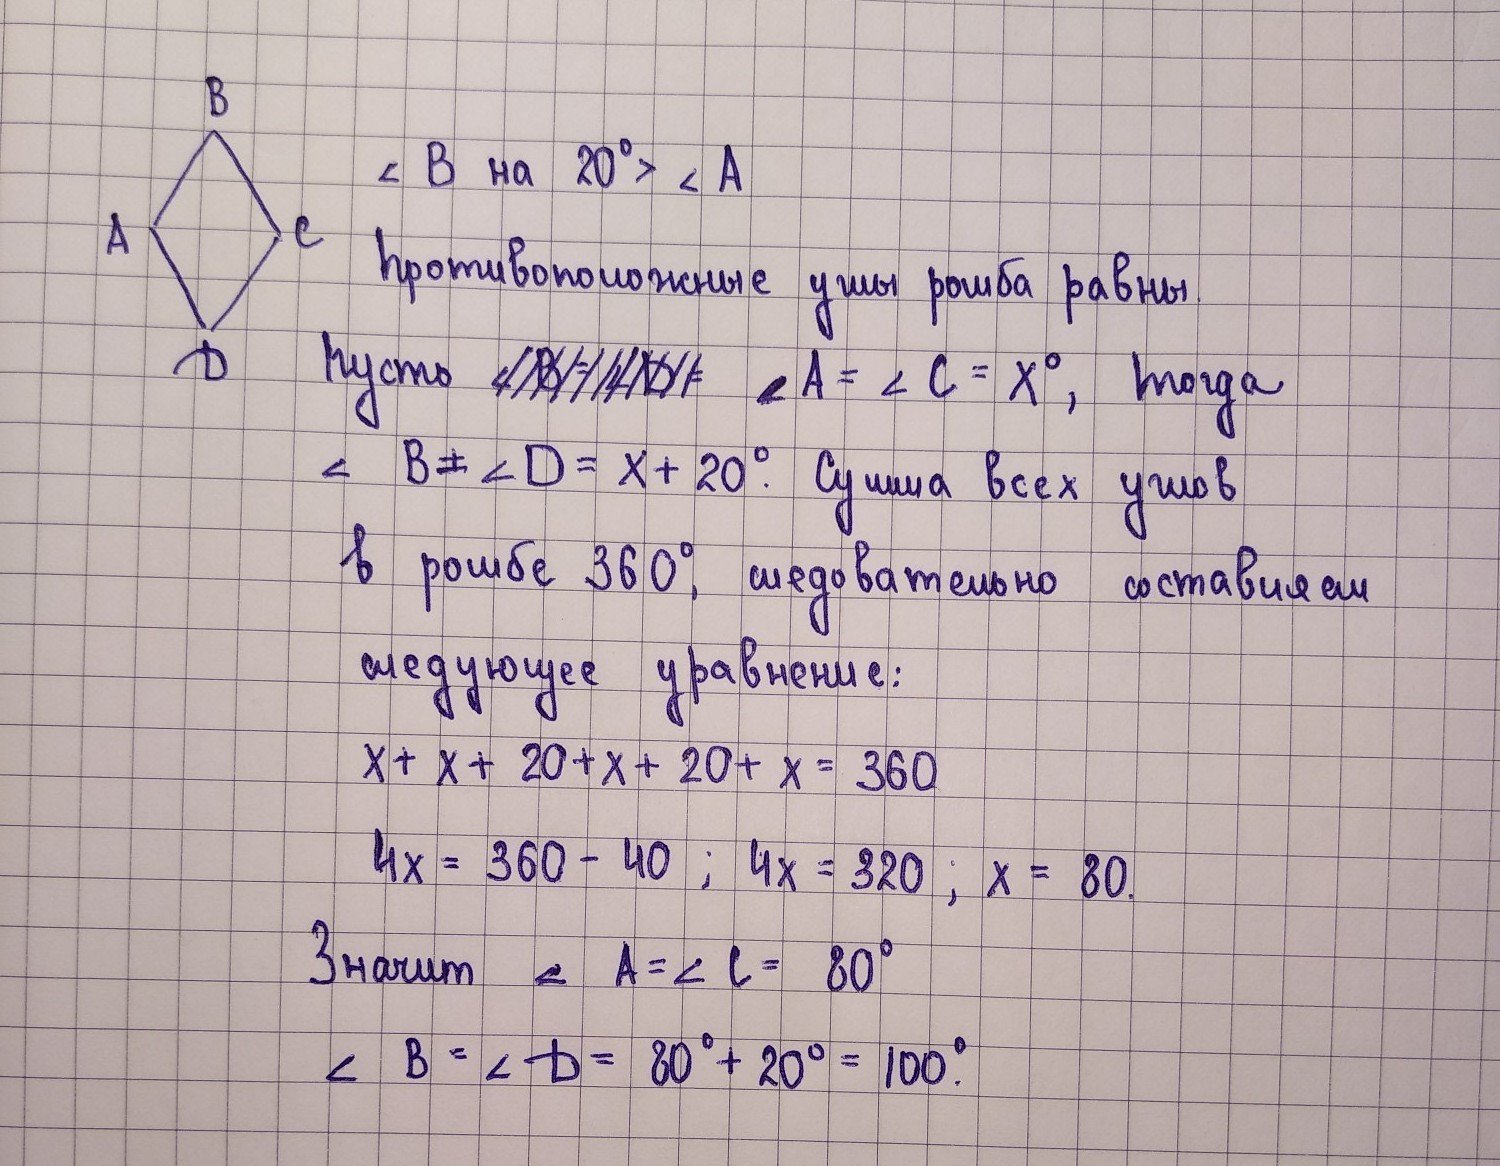 B
A
C
D
∠ B на 20° > ∠ A
Противоположные углы ромба равны.
Пусть ∠ A = ∠ C = x°, тогда
∠ B = ∠ D = x + 20°. Сумма всех углов
в ромбе 360°, следовательно составляем
следующее уравнение:
x + x + 20 + x + 20 + x = 360
4x = 360 - 40 ; 4x = 320 ; x = 80.
Значит ∠ A = ∠ C = 80°
∠ B = ∠ D = 80° + 20° = 100°.